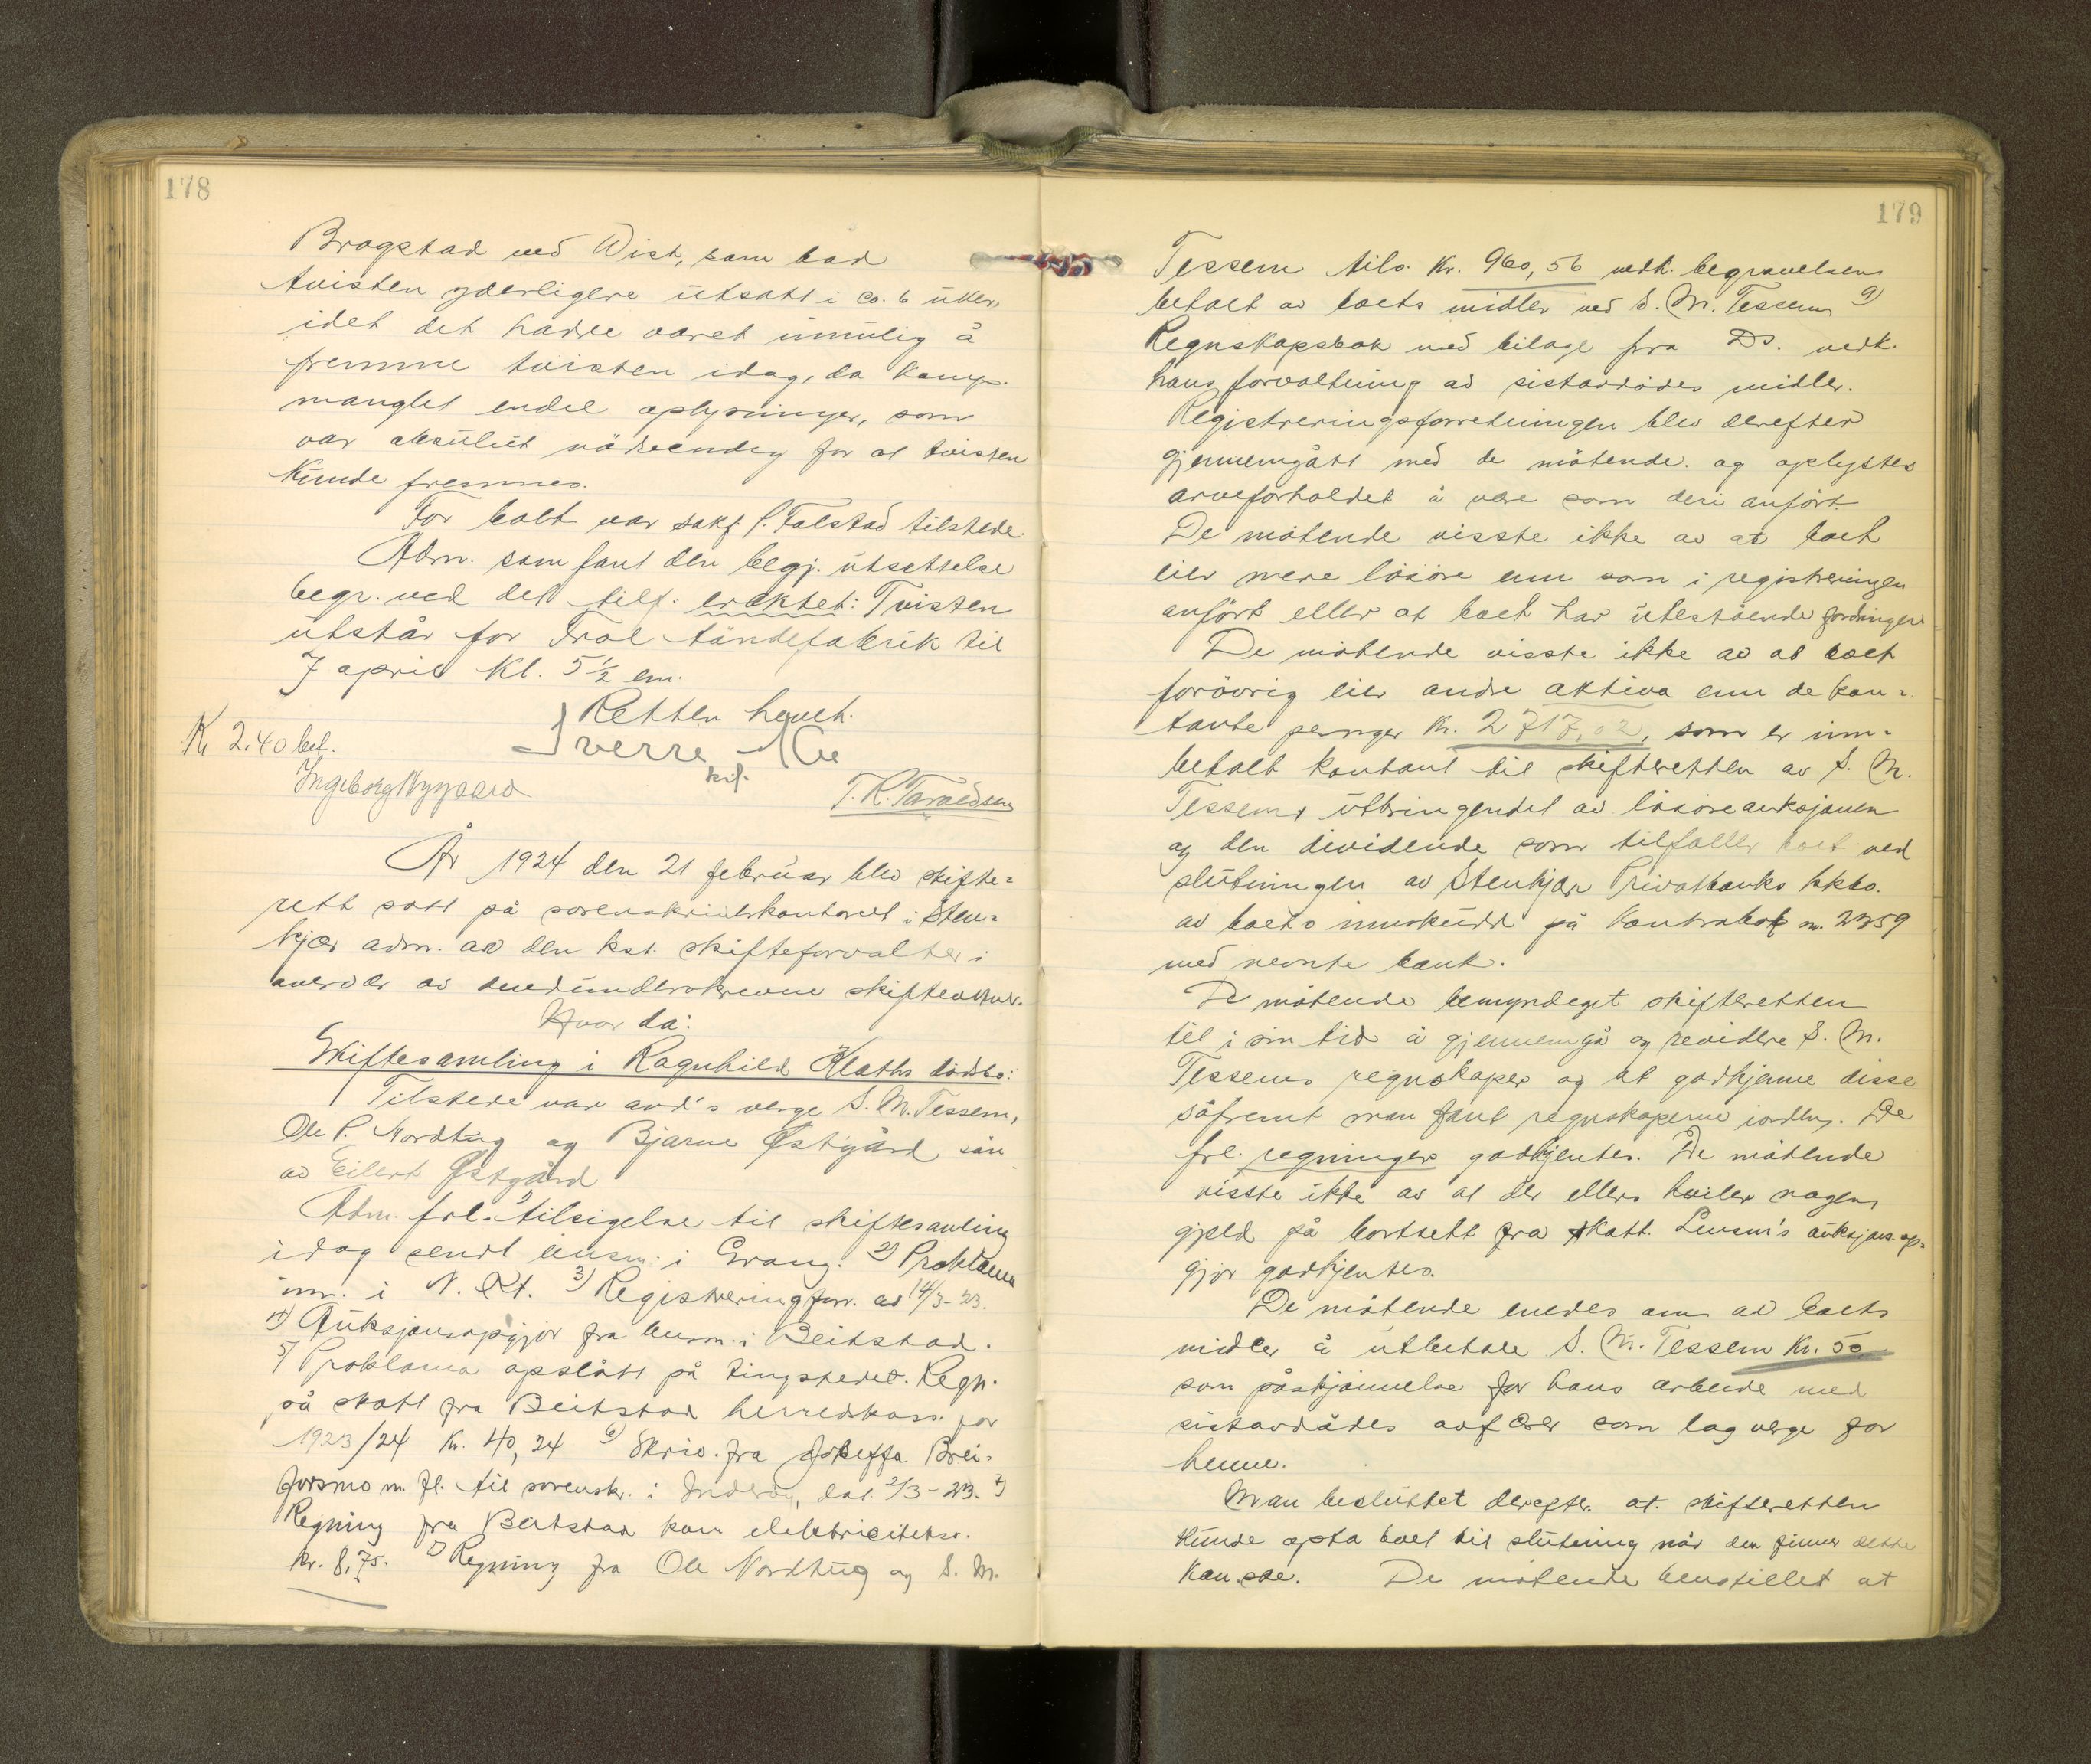 178
Brogstad ved Wist, som bad
tvisten yderligere utsatt i ca. 6 uker,
idet det hadde været umulig å
fremme tvisten idag, da komp.
manglet endel oplysninger, som
var absolut nödvendig for at tvisten
kunde fremmes.
For boet var sakf. P. Falstad tilstede.
Adm. som fant den begj. utsettelse
begr. ved det tilf. eraktet: Tvisten
utstår for Trol tändefabrik til
7 april kl. 5 1/2 em.
Retten hevet.
Kr 2.40 bet. Sverre
skif.
Ingeborg Nygaard T. R. Taraldsen
År 1924 den 21 februar blev skifte=
rett satt på sorenskriverkontoret i Sten=
kjær adm. av den kst. skifteforvalter i
overvær av de skiftevidner.
Hvor da:
Skiftesamling i Ragnhild Klaths dödsbo:
Tilstede var avd's verge S. M. Tessem,
Ole P. Nordtug og Bjarne Östgård, sön
av Eilert Østgård
Adm. frl. 1) tilsigelse til skiftesamling
idag sendt lensm. i Grong. 2) Proklama
inr. i N. Rt. 3) Registreringsforr. av 14/3-23.
4) Auksjonsopgjör fra lensm. i Beitstad.
5) Proklama opslått på tingstedet. Regn.
på skatt fra Beitstad herredskass. for
1923/24 kr. 40,24 6) Skriv. fra Joseffa Brei-
forsmo m. fl. til sorenskr. i Inderöy, dat. 2/3-23. 7)
Regning fra Beitstad kom. elektricitetsv.
kr. 8,75. Regning fra Ole Nordtug og S. M.
179
Tessem tils. kr. 960,56 vedk. begravelsen
betalt av boets midler ved S. M. Tessem 9)
Regnskapsbok med bilage fra Ds. vedk.
hans forvaltning av sistavdödes midler.
Registreringsforretningen blev derefter
gjennemgått med de mötende. og oplystes
arveforholdet å være som deri anfört.
De mötende visste ikke av at boet
eier mere lösöre enn som i registreringen
anfört eller at boet har utestående fordringer
De mötende visste ikke av at boet
forövrig eier andre aktiva enn de kon=
tante penger kr. 2717,02, som er inn=
betalt kontant til skifteretten av S. M.
Tessem, utbringendet av lösöreauksjonen
og den dividende som tilfaller boet ved
slutningen av Stenkjær Privatbanks kkbo.
av boets innskudd på kontrabok nr. 2259
med nevnte bank.
De mötende bemyndiget skifteretten
til i sin tid å gjennemgå og revidere S. M.
Tessems regnskaper og at godkjenne disse
såfremt man fant regnskapene iorden. De
frl. regninger godkjentes. De mötende
visste ikke av at der ellers hviler nogen
gjeld på bortsett fra skatt. Lensm's auksjons.op=
gjör godkjentes.
De mötende enedes om av boets
midler å utbetale S. M. Tessem kr. 50
som påskjönnelse for hans arbeide med
sistavdödes avfærer som lagverge for
henne.
Man besluttet derefter. at skifteretten
kunde opta boet til slutning når den finner dette
kan skje. De mötende henstillet at